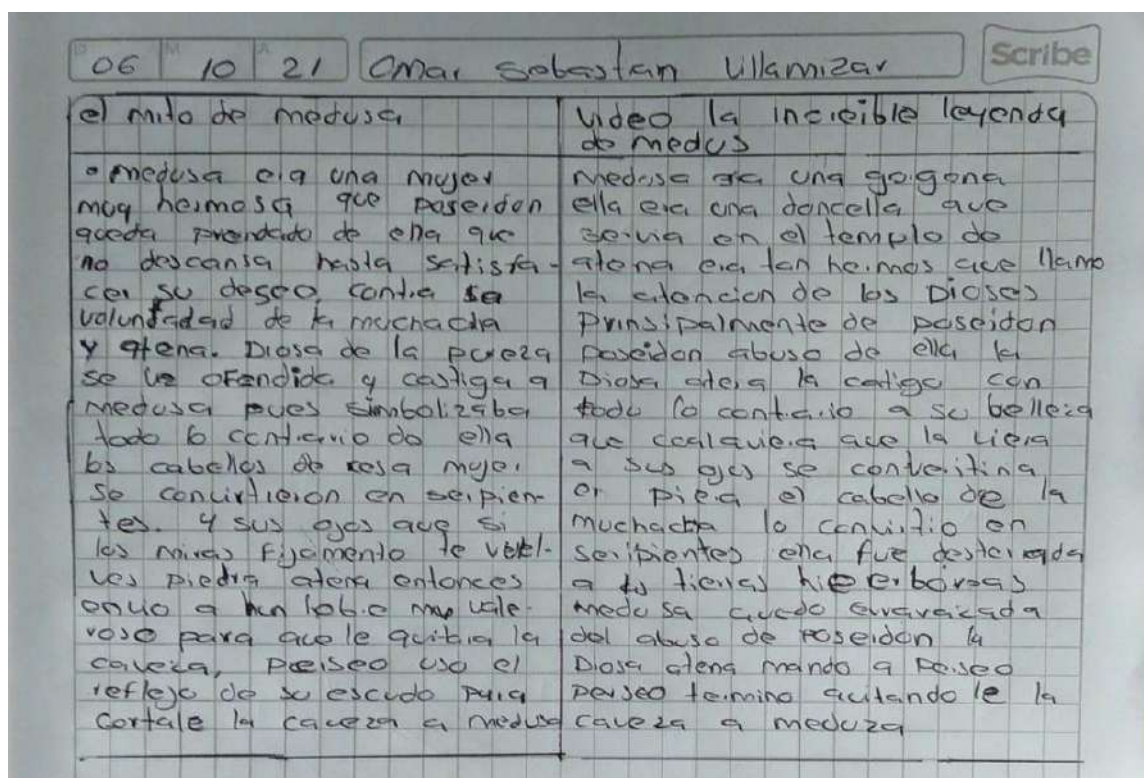 06 10 21 Omar Sebastian Villamizar
Scribe
el mito de medusa
• medusa era una mujer
muy hermosa que poseidon
queda prendado de ella que
no descansa hasta satisfa-
cer su deseo contra
voluntadad de la muchacha
y atena. Diosa de la pureza
se ve ofendida y castiga a
medusa pues simbolizaba
todo lo contrario de ella
los cabellos de esa mujer
se convirtieron en serpien-
tes. y sus ojos que si
los miras fijamente te vuel-
ves piedra atena entonces
envio a hombre muy vale-
roso para que le quitara la
caveza, perseo uso el
reflejo de su escudo para
cortale la caveza a medusa
video la increible leyenda
de medus
medusa era una gorgona
ella era una doncella que
servia en el templo de
atena era tan hermos que llamo
la atencion de los Dioses
prinsipalmente de poseidon
poseidon abuso de ella la
Diosa atena la castigo con
todo lo contrario a su belleza
que cualquiera que la viera
a sus ojos se convertiria
en piedra el cabello de la
muchacha lo convirtio en
seripientes ella fue desterrada
a tierras
medusa quedo
del abuso de poseidon la
Diosa atena mando a perseo
perseo termino quitando le la
caveza a meduza